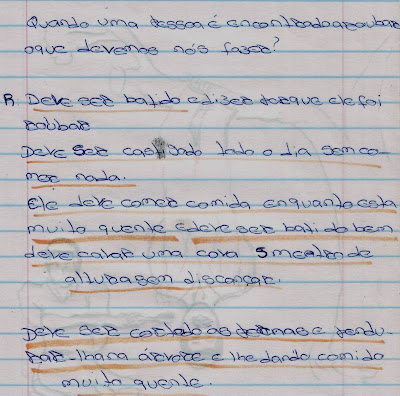 Quando uma pessoa é encontrado aroubar
oque devemos nós fazer?
R. Deve ser batido e dizer porque ele foi
roubar
Deve ser castigado todo o dia sem co-
mer nada.
Ele deve comer comida enquanto esta
muito quente e deve ser batido bem
deve cavar uma cova 5 mestros de
altura sem discançar.
Deve ser cortado as pernas e pendu-
rar-lhe na árvore e lhe dando comida
muito quente.